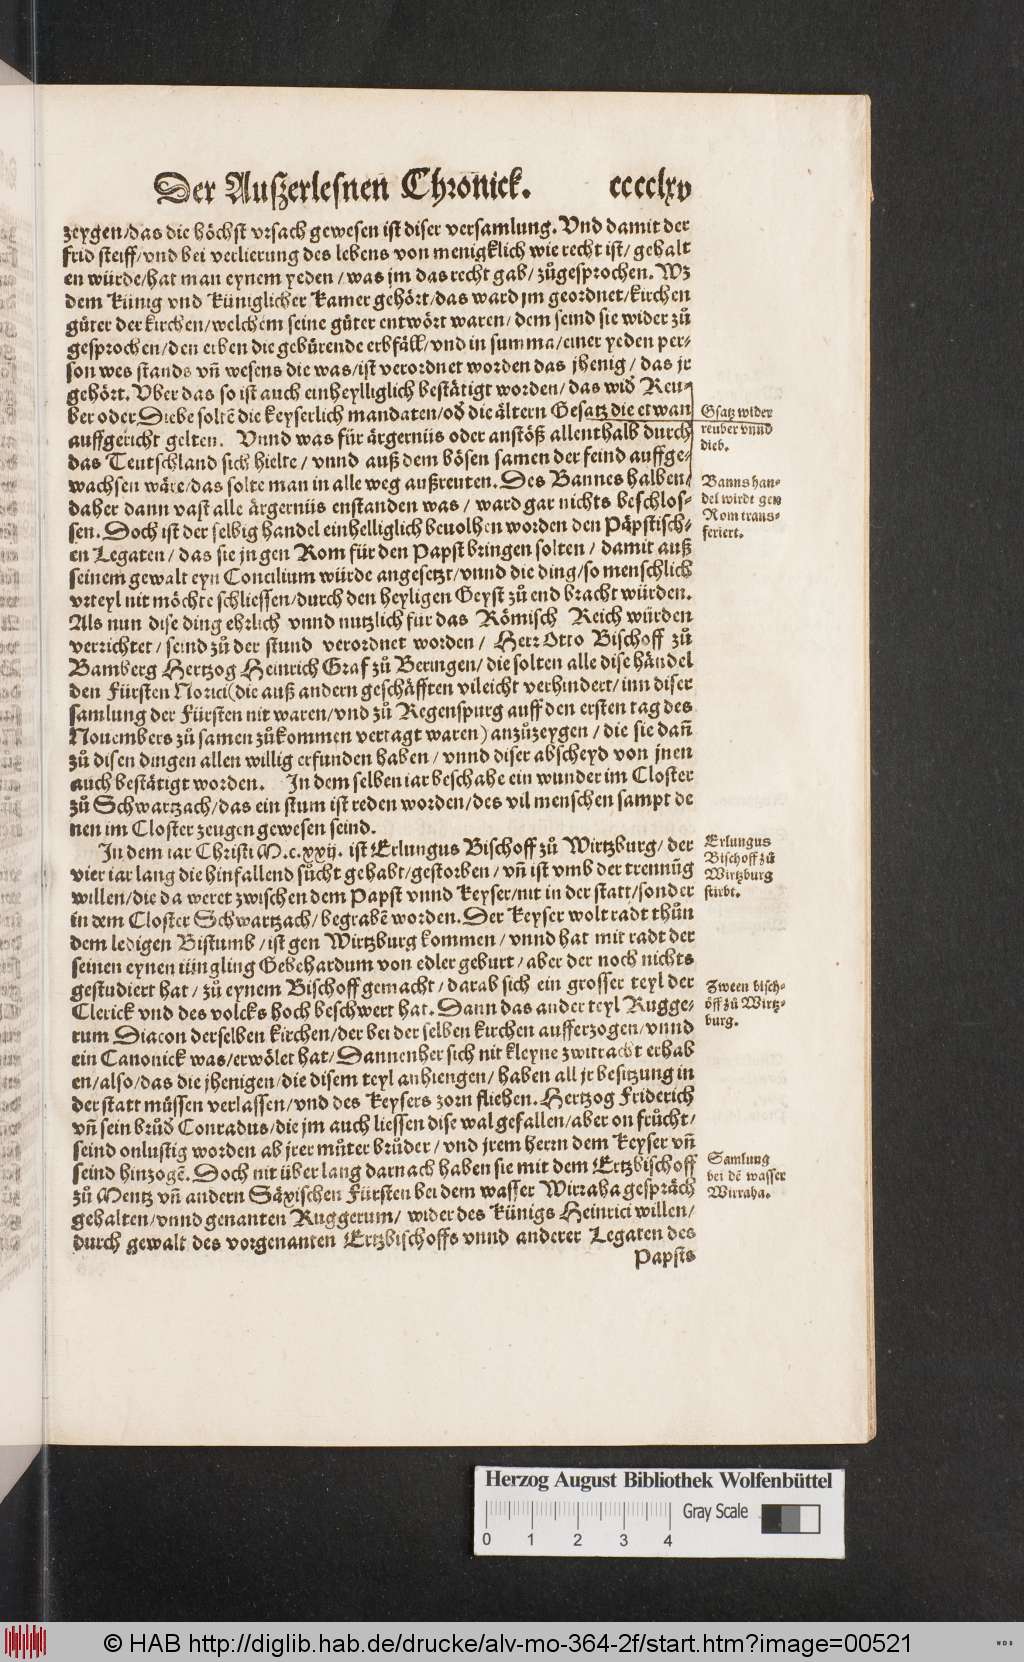 Der Außerlesnen Chronick. cccclxv
zeygen/das die höchst vrsach gewesen ist diser versamlung. Vnd damit der
frid steiff/vnd bei verlierung des lebens von menigklich wie recht ist/gehalt
en würde/hat man eynem yeden/was jm das recht gab/zůgesprochen. Wz
dem Künig vnd Küniglicher Kamer gehört/das ward jm geordnet/kirchen
güter der kirchen/welchem seine güter entwört waren/dem seind sie wider zů
gesprochen/den erben die gebürende erbfäll/vnd in summa/einer yeden per-
son wes stands vñ wesens die was/ist verordnet worden das jhenig/das jr
gehört. Vber das so ist auch einhelliglich bestätigt worden/das wid̕ Reu-
ber oder Diebe soltẽ die keyserlich mandaten/od̕ die ältern Gesatz die etwan
auffgericht gelten. Vnnd was für ärgernüs oder anstöß allenthalb durch
das Teutschland sich hielte/vnnd auß dem bösen samen der feind auffge-
wachsen wäre/das solte man in alle weg außreuten. Des Bannes halben/
daher dann vast alle ärgernüs enstanden was/ward gar nichts beschlos-
sen. Doch ist der selbig handel einhelliglich beuolhen worden den Päpstisch-
en Legaten/das sie jn gen Rom für den Papst bringen solten/damit auß
seinem gewalt eyn Concilium würde angesetzt/vnnd die ding/so menschlich
vrteyl nit möchte schliessen/durch den heyligen Geyst zů end bracht würden.
Als nun dise ding ehrlich vnnd nutzlich für das Römisch Reich würden
verrichtet/seind zů der stund verordnet worden/Herr Otto Bischoff zů
Bamberg Hertzog Heinrich Graf zů Beringen/die solten alle dise händel
den Fürsten Norici(die auß andern geschäfften vileicht verhindert/inn diser
samlung der Fürsten nit waren/vnd zů Regenspurg auff den ersten tag des
Nouembers zů samen zůkommen vertagt waren)anzůzeygen/die sie dañ
zů disen dingen allen willig erfunden haben/vnnd diser abscheyd von jnen
auch bestätigt worden. In dem selben iar beschahe ein wunder im Closter
zů Schwartzach/das ein stum ist reden worden/des vil menschen sampt de
nen im Closter zeugen gewesen seind.
In dem iar Christi M.c.xxij. ist Erlungus Bischoff zů Wirtzburg/der
vier iar lang die hinfallend sůcht gehabt/gestorben/vñ ist vmb der trennũg
willen/die da weret zwischen dem Papst vnnd Keyser/nit in der statt/sonder
in dem Closter Schwartzach/begrabẽ worden. Der Keyser wolt radt thůn
dem ledigen Bistumb/ist gen Wirtzburg kommen/vnnd hat mit radt der
seinen eynen jüngling Gebehardum von edler geburt/aber der noch nichts
gestudiert hat/zů eynem Bischoff gemacht/darab sich ein grosser teyl der
Clerick vnd des volcks hoch beschwert hat. Dann das ander teyl Rugge-
rum Diacon derselben kirchen/der bei der selben kirchen aufferzogen/vnnd
ein Canonick was/erwölet hat/Dannenher sich nit kleyne zwitracht erhab
en/also/das die jhenigen/die disem teyl anhiengen/haben all jr besitzung in
der statt müssen verlassen/vnd des Keysers zorn fliehen. Hertzog Friderich
vñ sein brůd̕ Conradus/die jm auch liessen dise wal gefallen/aber on frücht/
seind onlustig worden ab jrer můter brůder/vnd jrem herrn dem Keyser vñ
seind hinzogẽ. Doch nit über lang darnach haben sie mit dem Ertzbischoff
zů Mentz vñ andern Säxischen Fürsten bei dem wasser Wirraha gespräch
gehalten/vnnd genanten Ruggerum/wider des Künigs Heinrici willen/
durch gewalt des vorgenanten Ertzbischoffs vnnd anderer Legaten des
Papsts
Gsatz wider
reuber vnnd
dieb.
Banns han-
del wirdt gen
Rom trans-
feriert.
Erlungus
Bischoff zů
Wirtzburg
stirbt.
Zween bisch-
öff zů Wirtz-
burg.
Samlung
bei dẽ wasser
Wirraha.
Herzog August Bibliothek Wolfenbüttel
0 1 2 3 4
Gray Scale
© HAB http://diglib.hab.de/drucke/alv-mo-364-2f/start.htm?image=00521